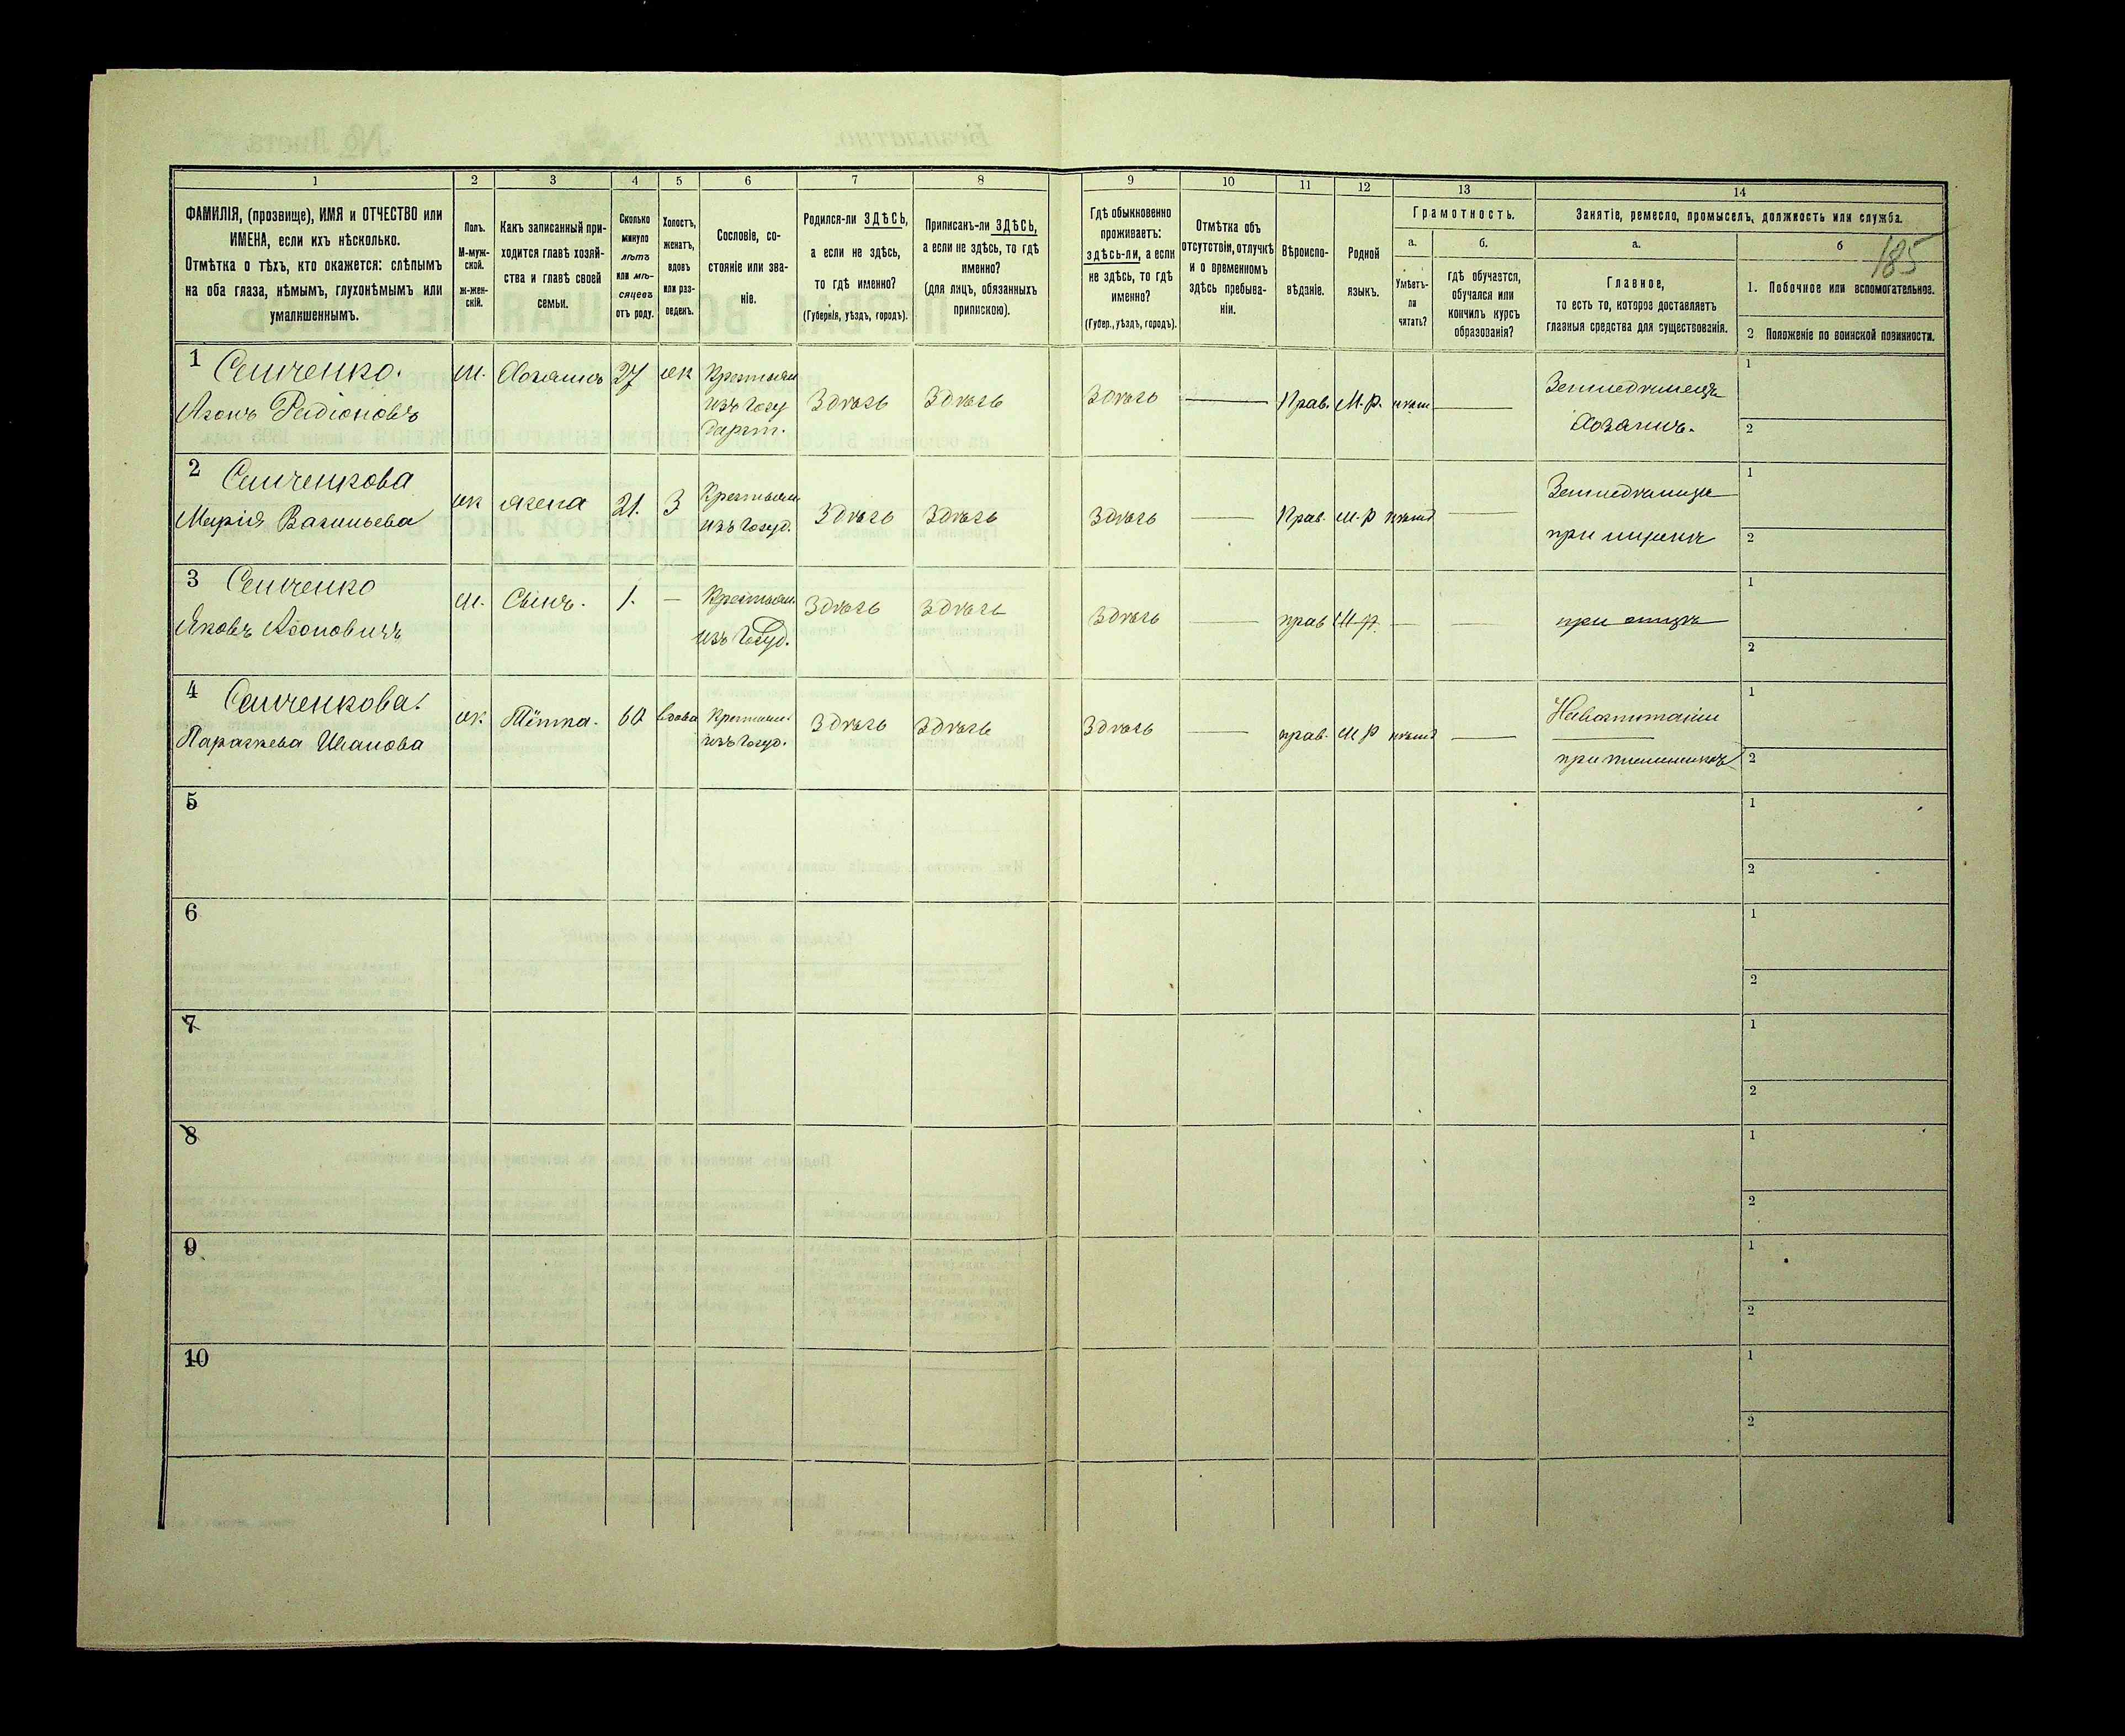 1
2
3
4
5
6
7
8
9
10
11
12
13
14
ФАМИЛІЯ, (прозвище), ИМЯ и ОТЧЕСТВО или
ИМЕНА, если ихъ нѣсколько.
Отмѣтка о тѣхъ, кто окажется: слѣпымъ
на оба глаза, нѣмымъ, глухонѣмымъ или
умалишеннымъ.
Полъ.
М-муж-
ской.
ж-жен-
скій.
Какъ записанный при-
ходится главѣ хозяй-
ства и главѣ своей
семьи.
Сколько
минуло
лѣтъ
или мѣ-
сяцевъ
отъ роду.
Холостъ,
женатъ,
вдовъ
или раз-
веденъ.
Сословіе, со-
стояніе или зва-
ніе.
Родился-ли ЗДѢСЬ,
а если не здѣсь,
то гдѣ именно?
(Губернія, уѣздъ, городъ).
Приписанъ-ли ЗДѢСЬ,
а если не здѣсь, то гдѣ
именно?
(для лицъ, обязанныхъ
припискою).
Гдѣ обыкновенно
проживаетъ:
здѣсь-ли, а если
не здѣсь, то гдѣ
именно?
(Губер., уѣздъ, городъ).
Отмѣтка объ
отсутствіи, отлучкѣ
и о временномъ
здѣсь пребыва-
ніи.
Вѣроиспо-
вѣданіе.
Родной
языкъ.
Грамотность.
а.
Умѣетъ-
ли
читать?
б.
гдѣ обучается,
обучался или
кончилъ курсъ
образованія?
Занятіе, ремесло, промыселъ, должность или служба.
а.
Главное,
то есть то, которое доставляетъ
главныя средства для существованія.
б
185
1. Побочное или вспомогательное.
2 Положеніе по воинской повинности.
1 Семченко.
Агонъ Радіоновъ
м. Хозяинъ 27 ж Крестьян
изъ Госу
дарст.
Здѣсь Здѣсь Здѣсь Прав. М-р.
Земледѣлецъ
Хозяинъ.
1
2
2 Семченкова
Марія Васильева
ж жена 21. З Крестьян
изъ Госуд.
Здѣсь Здѣсь Здѣсь Прав. м-р
при мужѣ
1
2
3 Семченко
Яковъ Агоновичъ
м. Сынъ. 1. — Крестьян.
изъ Госуд.
Здѣсь Здѣсь Здѣсь прав М-р.
при отцѣ
1
2
4 Семченкова.
Параскева Иванова
ж. Тётка. 60 вдова Крестьян.
изъ Госуд.
Здѣсь Здѣсь Здѣсь прав. м р
при племянникѣ
1
2
5
1
2
6
1
2
7
1
2
8
1
2
9
1
2
10
1
2